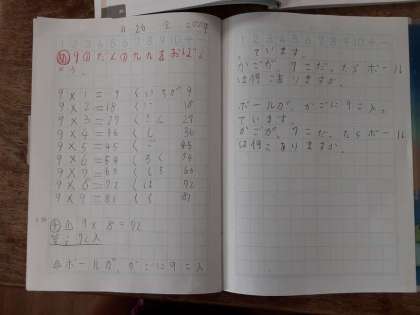 9のだんの九九をおぼえ
よう。
9×1=9 くいちが 9
9×2=18 くに 18
9×3=27 くさん 27
9×4=36 くし 36
9×5=45 くご 45
9×6=54 くろく 54
9×7=63 くしち 63
9×8=72 くは 72
9×9=81 くく 81
9×8=72
答え 72人
ボールが、かごに9こ入
っています。
かごが、7こだったらボール
は何こありますか。
ボールが、かごに9こ入っ
ています。
かごが、7こだったらボール
は何こありますか。